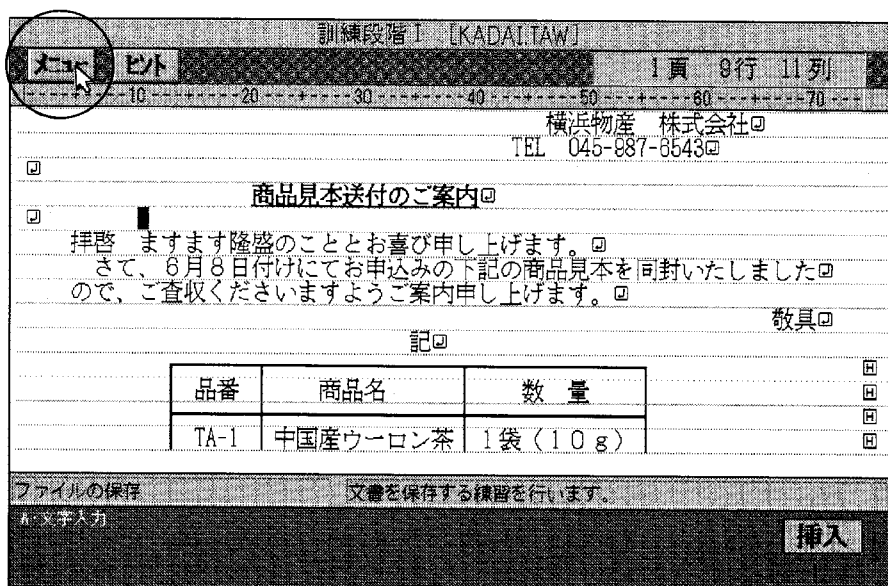 訓練段階Ⅰ [KADAI.TAW]
メニュー ヒント 1頁 9行 11列
10 20 30 40 50 60 70
横浜物産 株式会社
TEL 045-987-6543
商品見本送付のご案内
拝啓 ますます隆盛のこととお喜び申し上げます。
さて、6月8日付けにてお申込みの下記の商品見本を同封いたしました
ので、ご査収くださいますようご案内申し上げます。
敬具
記
品番 商品名 数 量
TA-1 中国産ウーロン茶 1袋(10g)
ファイルの保存 文書を保存する練習を行います。
A·文字入力
挿入